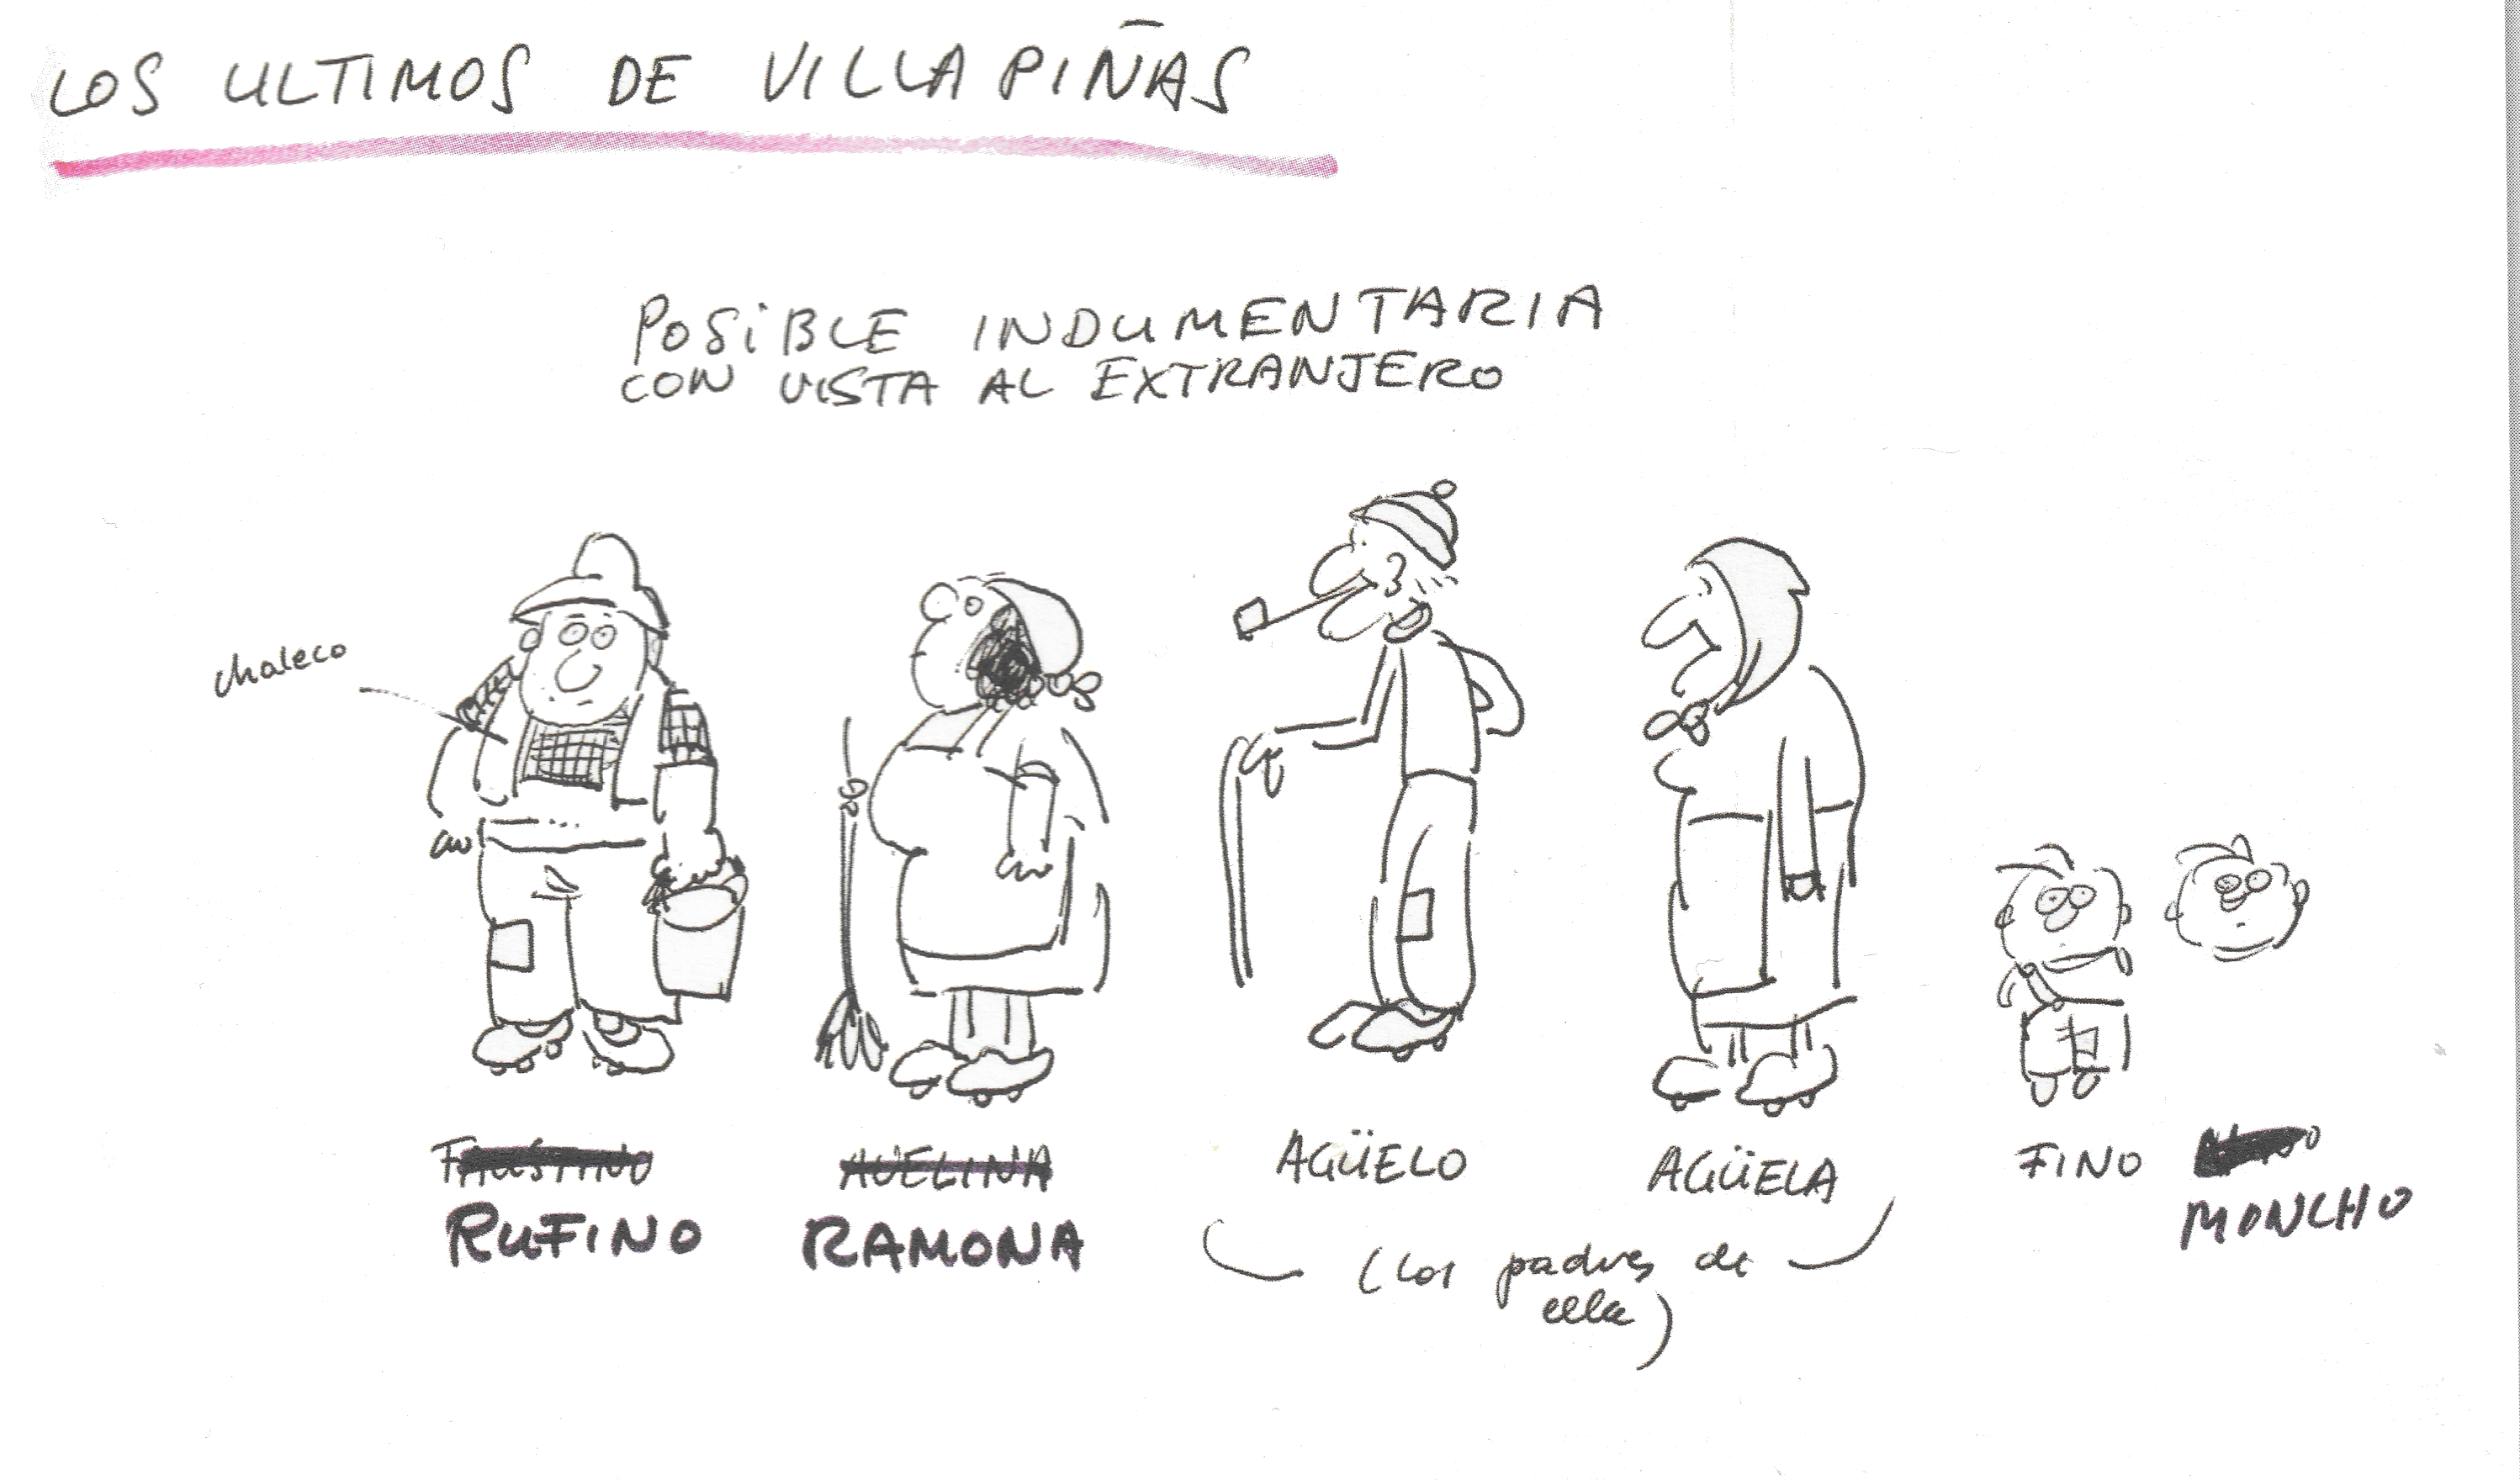 LOS ULTIMOS DE VILLAPIÑAS
POSIBLE INDUMENTARIA
CON VISTA AL EXTRANJERO
chaleco
FAUSTINO
RUFINO
AVELINA
RAMONA
AGÜELO
AGÜELA
(los padres de
ella)
FINO
MONCHO